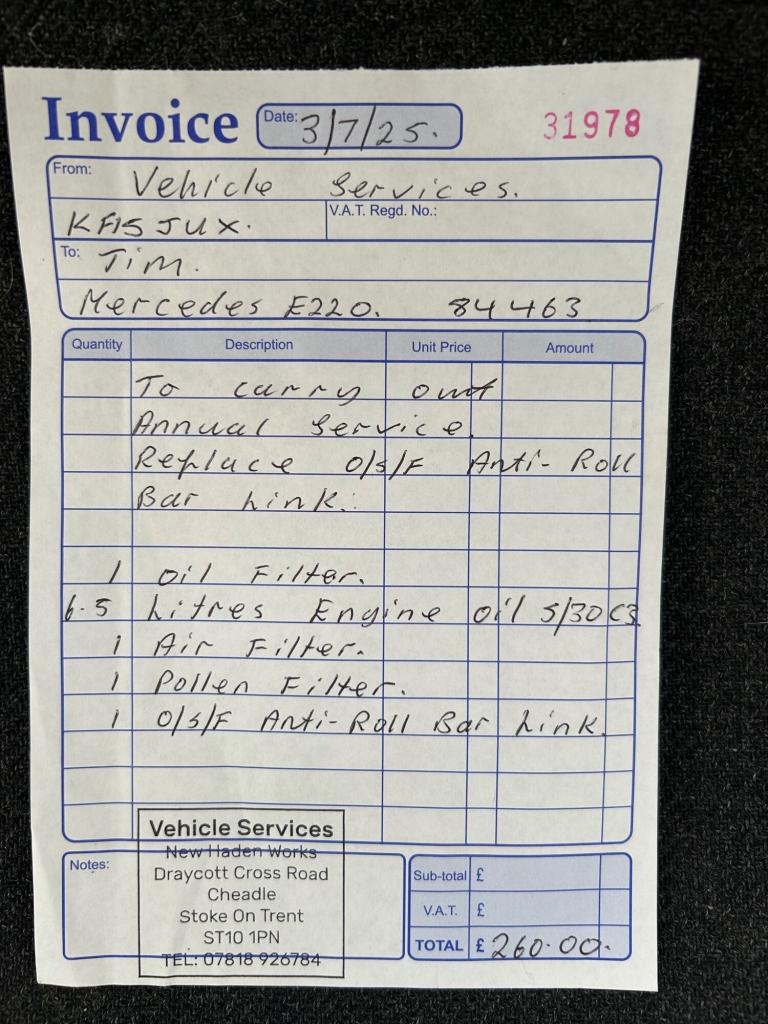 Invoice Date: 3/7/25. 31978
From: Vehicle Services.
KF15 JUX. V.A.T. Regd. No.:
To: Tim.
Mercedes E220. 84463
Quantity Description Unit Price Amount
To carry out
Annual Service.
Replace O/S/F Anti-Roll
Bar Link.
1 Oil Filter.
6.5 Litres Engine oil 5/30 C3
1 Air Filter.
1 Pollen Filter.
1 O/S/F Anti-Roll Bar Link.
Vehicle Services
New Haden Works
Draycott Cross Road
Cheadle
Stoke On Trent
ST10 1PN
TEL: 07818 926784
Notes:
Sub-total £
V.A.T. £
TOTAL £ 260.00.